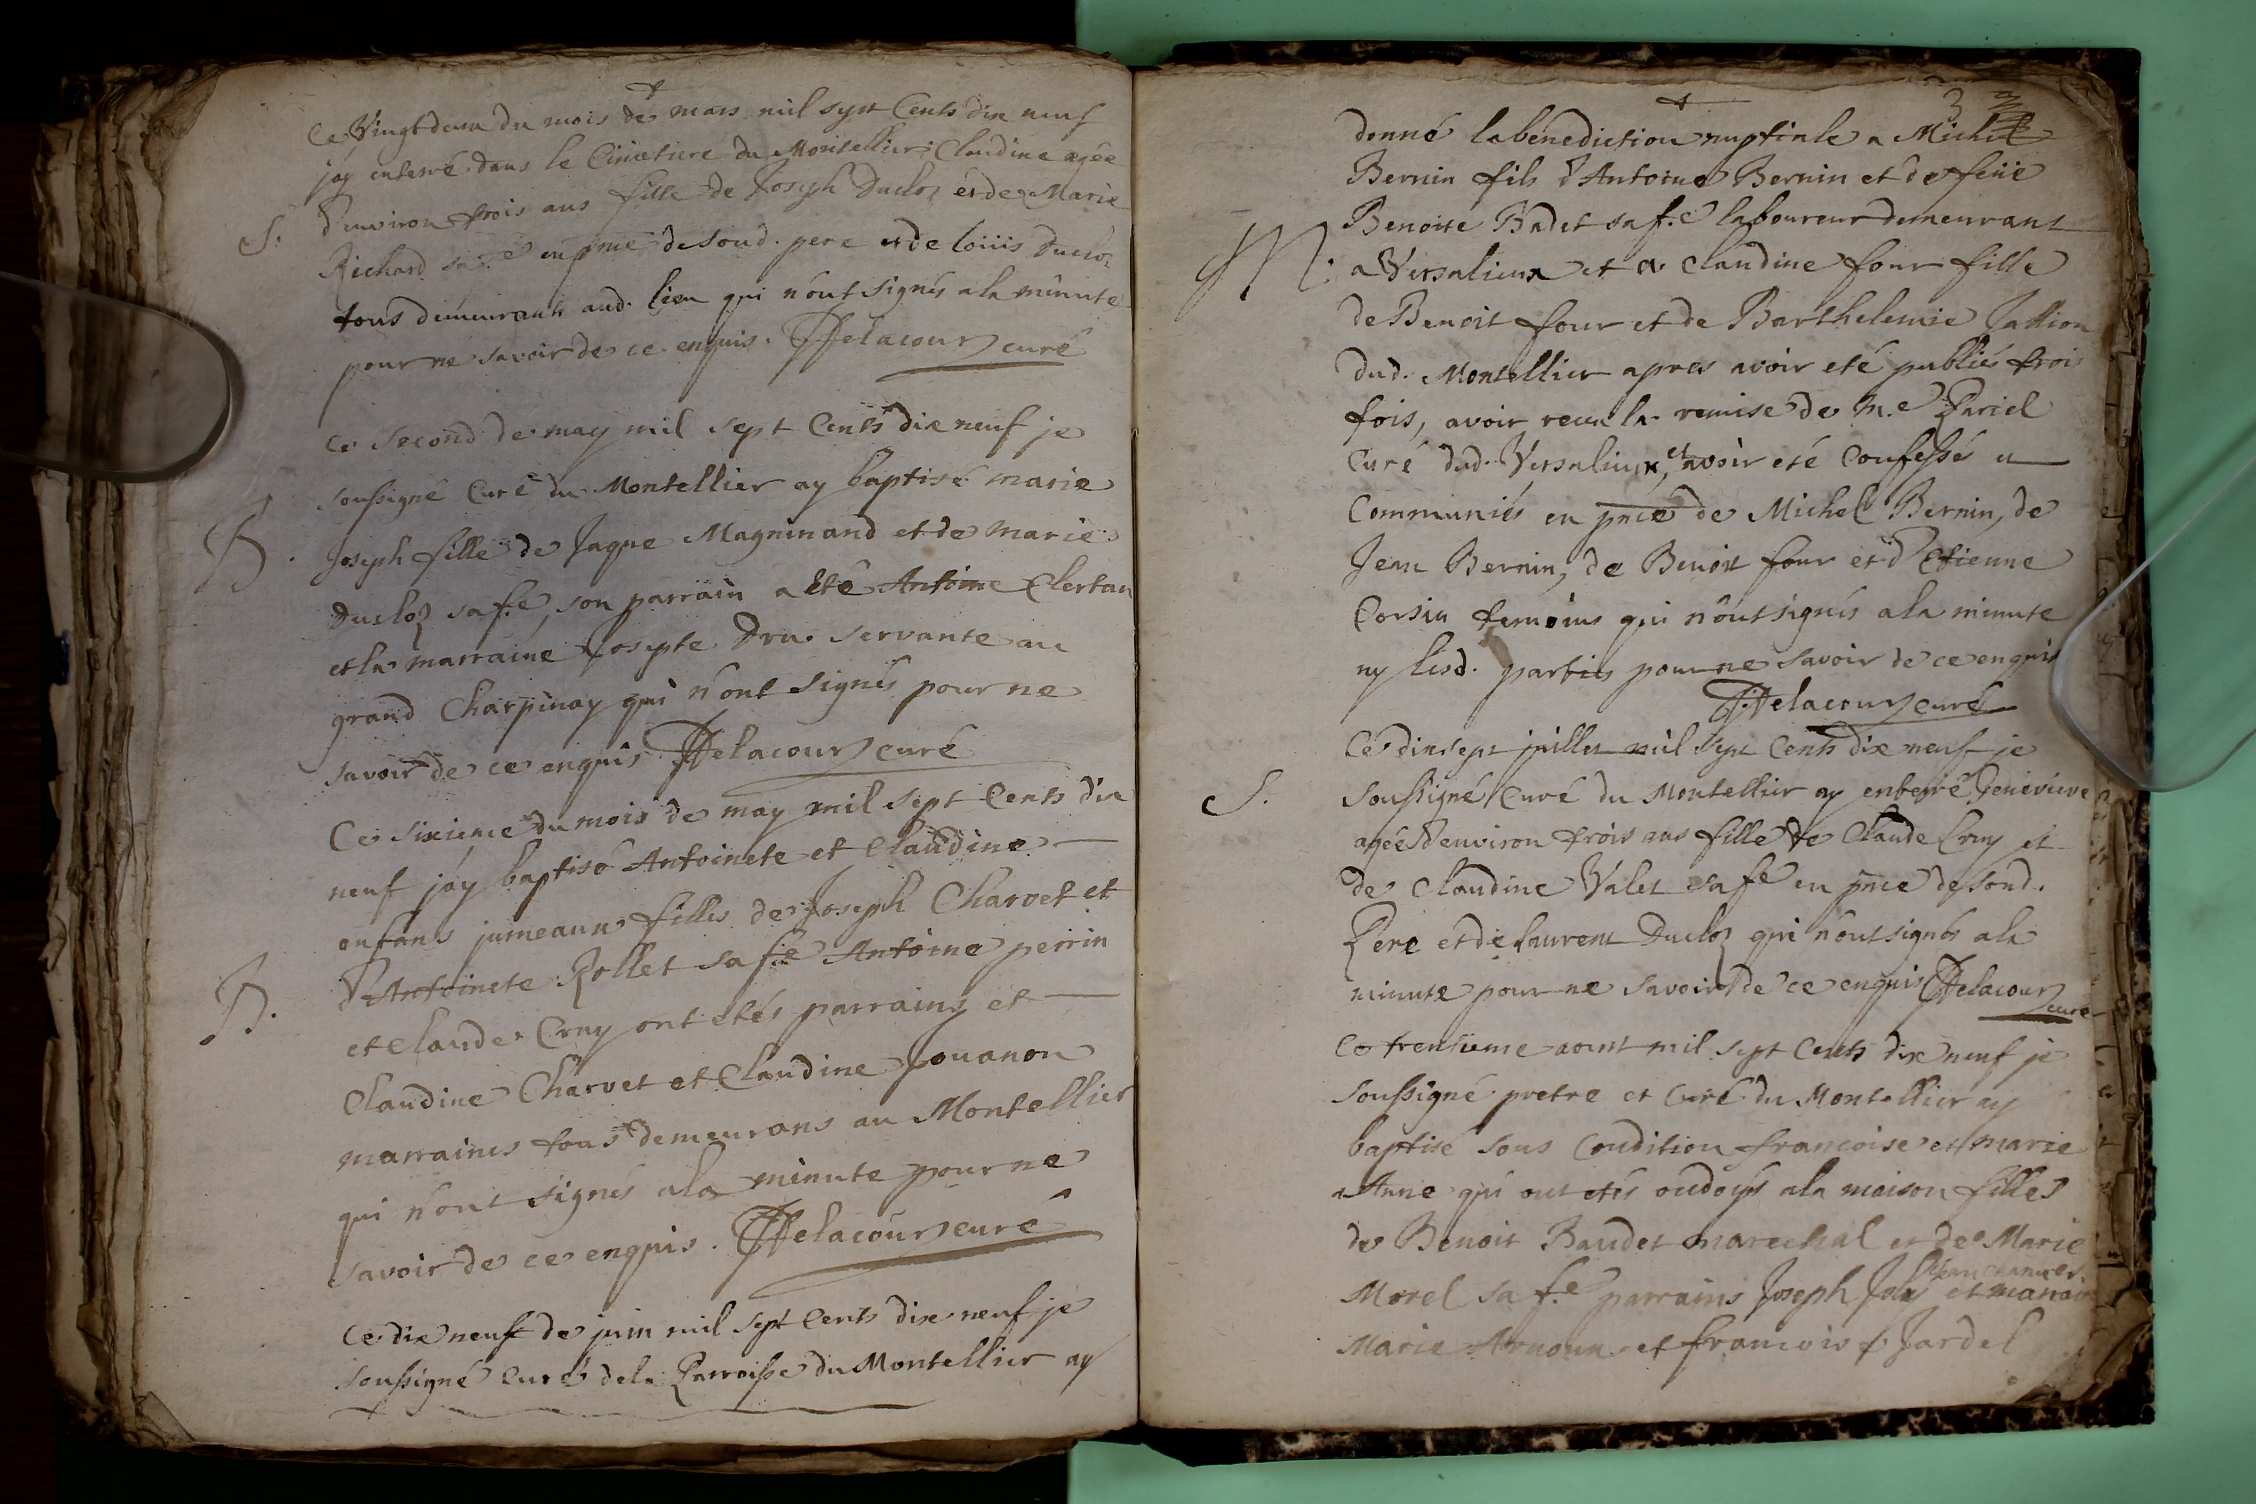 Ce Vingt deux du mois de mars mil sept Cents dix neuf
jay enterré dans le Cimetiere du Montellier Claudine agée
S. d'environ trois ans fille de Joseph Ducloz et de Marie
Richard sa f.e en pnce desond. pere et de loüis Ducloz
tous demeurants aud. lieu qui n'ont signés a la minute
pour ne savoir de ce enquis. Delacour curé
Ce second de may mil sept Cents dix neuf je
soussigné Curé du Montellier ay baptisé marie
B. Joseph fille de Jaque Magninand et de marie
Ducloz sa f.e, son parrain a eté Antoine Clertan
et la marraine Josepte Dru servante au
grand Charpinay qui n'ont signés pour ne
savoir de ce enquis Delacour curé
Ce sixieme du mois de may mil sept Cents dix
neuf jay baptisé Antoinete et Claudine
enfans jumeaux filles de Joseph Charvet et
B. d'Antoinete Rollet sa f.e Antoine perrin
et Claude Cruy ont etés parrains et
Claudine Charvet et Claudine Jouanon
marraines tous demeurans au Montellier
qui n'ont signés a la minute pour ne
savoir de ce enquis. Delacour curé
Ce dix neuf de juin mil sept Cents dix neuf je
soussigné Curé de la Parroisse du Montellier ay
3
donné la bénediction nuptiale a Michel
Bernin fils d'Antoine Bernin et de feüe
Benoite Badet sa f.e laboureur demeurant
M. a Versalieux et a Claudine four fille
de Benoit four et de Barthelemie Jallion
dud. Montellier apres avoir eté publiés trois
fois, avoir receu la remise de M.e Pariel
Curé dud. Versalieux, et avoir eté Confessés et
Communiés en pnce de Michel Bernin, de
Jean Bernin, de Benoit four et d'Etienne
Corsin temoins qui n'ont signés a la minute
ny lesd. parties pour ne savoir de ce enquis
Delacour curé
Ce dixsept juillet mil sept Cents dix neuf je
S. soussigné Curé du Montellier ay enterré Genevieve
agée d'environ trois ans fille de Claude Cruy et
de Claudine Valet sa f.e en pnce desond.
Pere et de Laurent Ducloz qui n'ont signés a la
minute pour ne savoir de ce enquis Delacour
curé
Ce trensieme aoust mil sept Cents dix neuf je
soussigné pretre et Curé du Montellier ay
baptisé sous Condition francoise et marie
Anne qui ont etés ondoyés a la maison filles
de Benoit Baudet marechal et de Marie
Morel sa f.e parrains Joseph et marraines
Marie et francoise Jardel